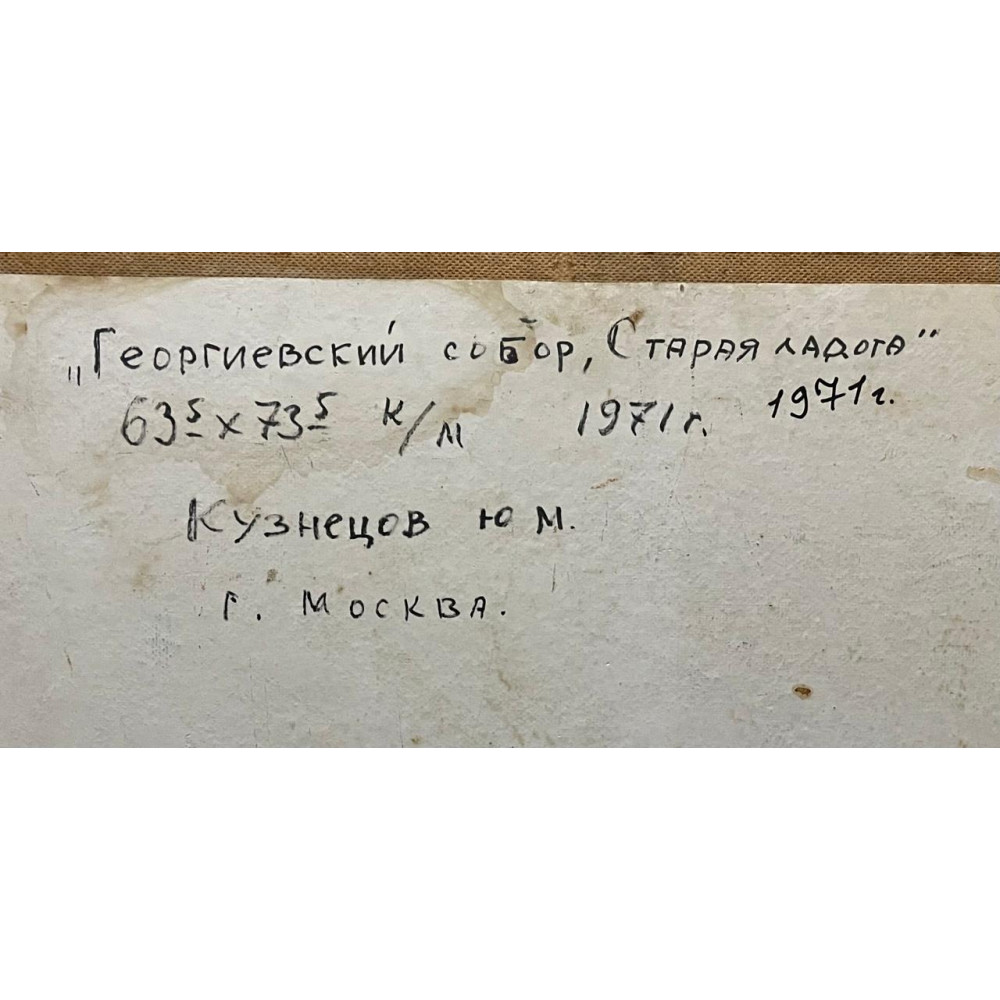 „Георгиевский собор, Старая Ладога"
63⁵ х 73⁵ к/м 1971г. 1971г.
Кузнецов Ю М.
г. Москва.